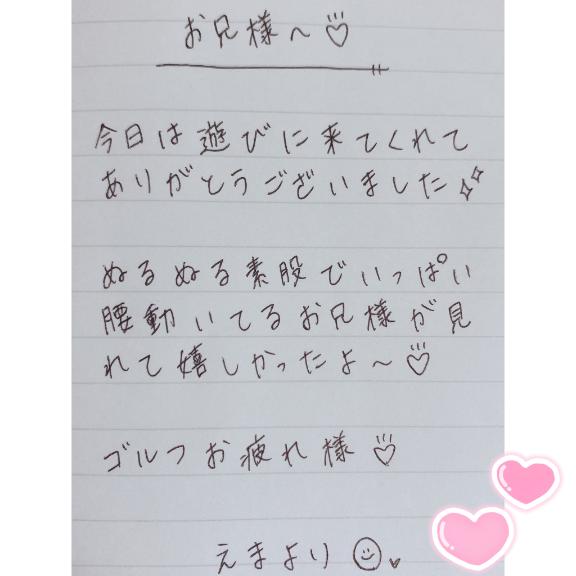 お兄様へ♡
今日は遊びに来てくれて
ありがとうございました✨
ぬるぬる素股でいっぱい
腰動いてるお兄様が見
れて嬉しかったよ〜♡
ゴルフお疲れ様♡
えまより☺♥